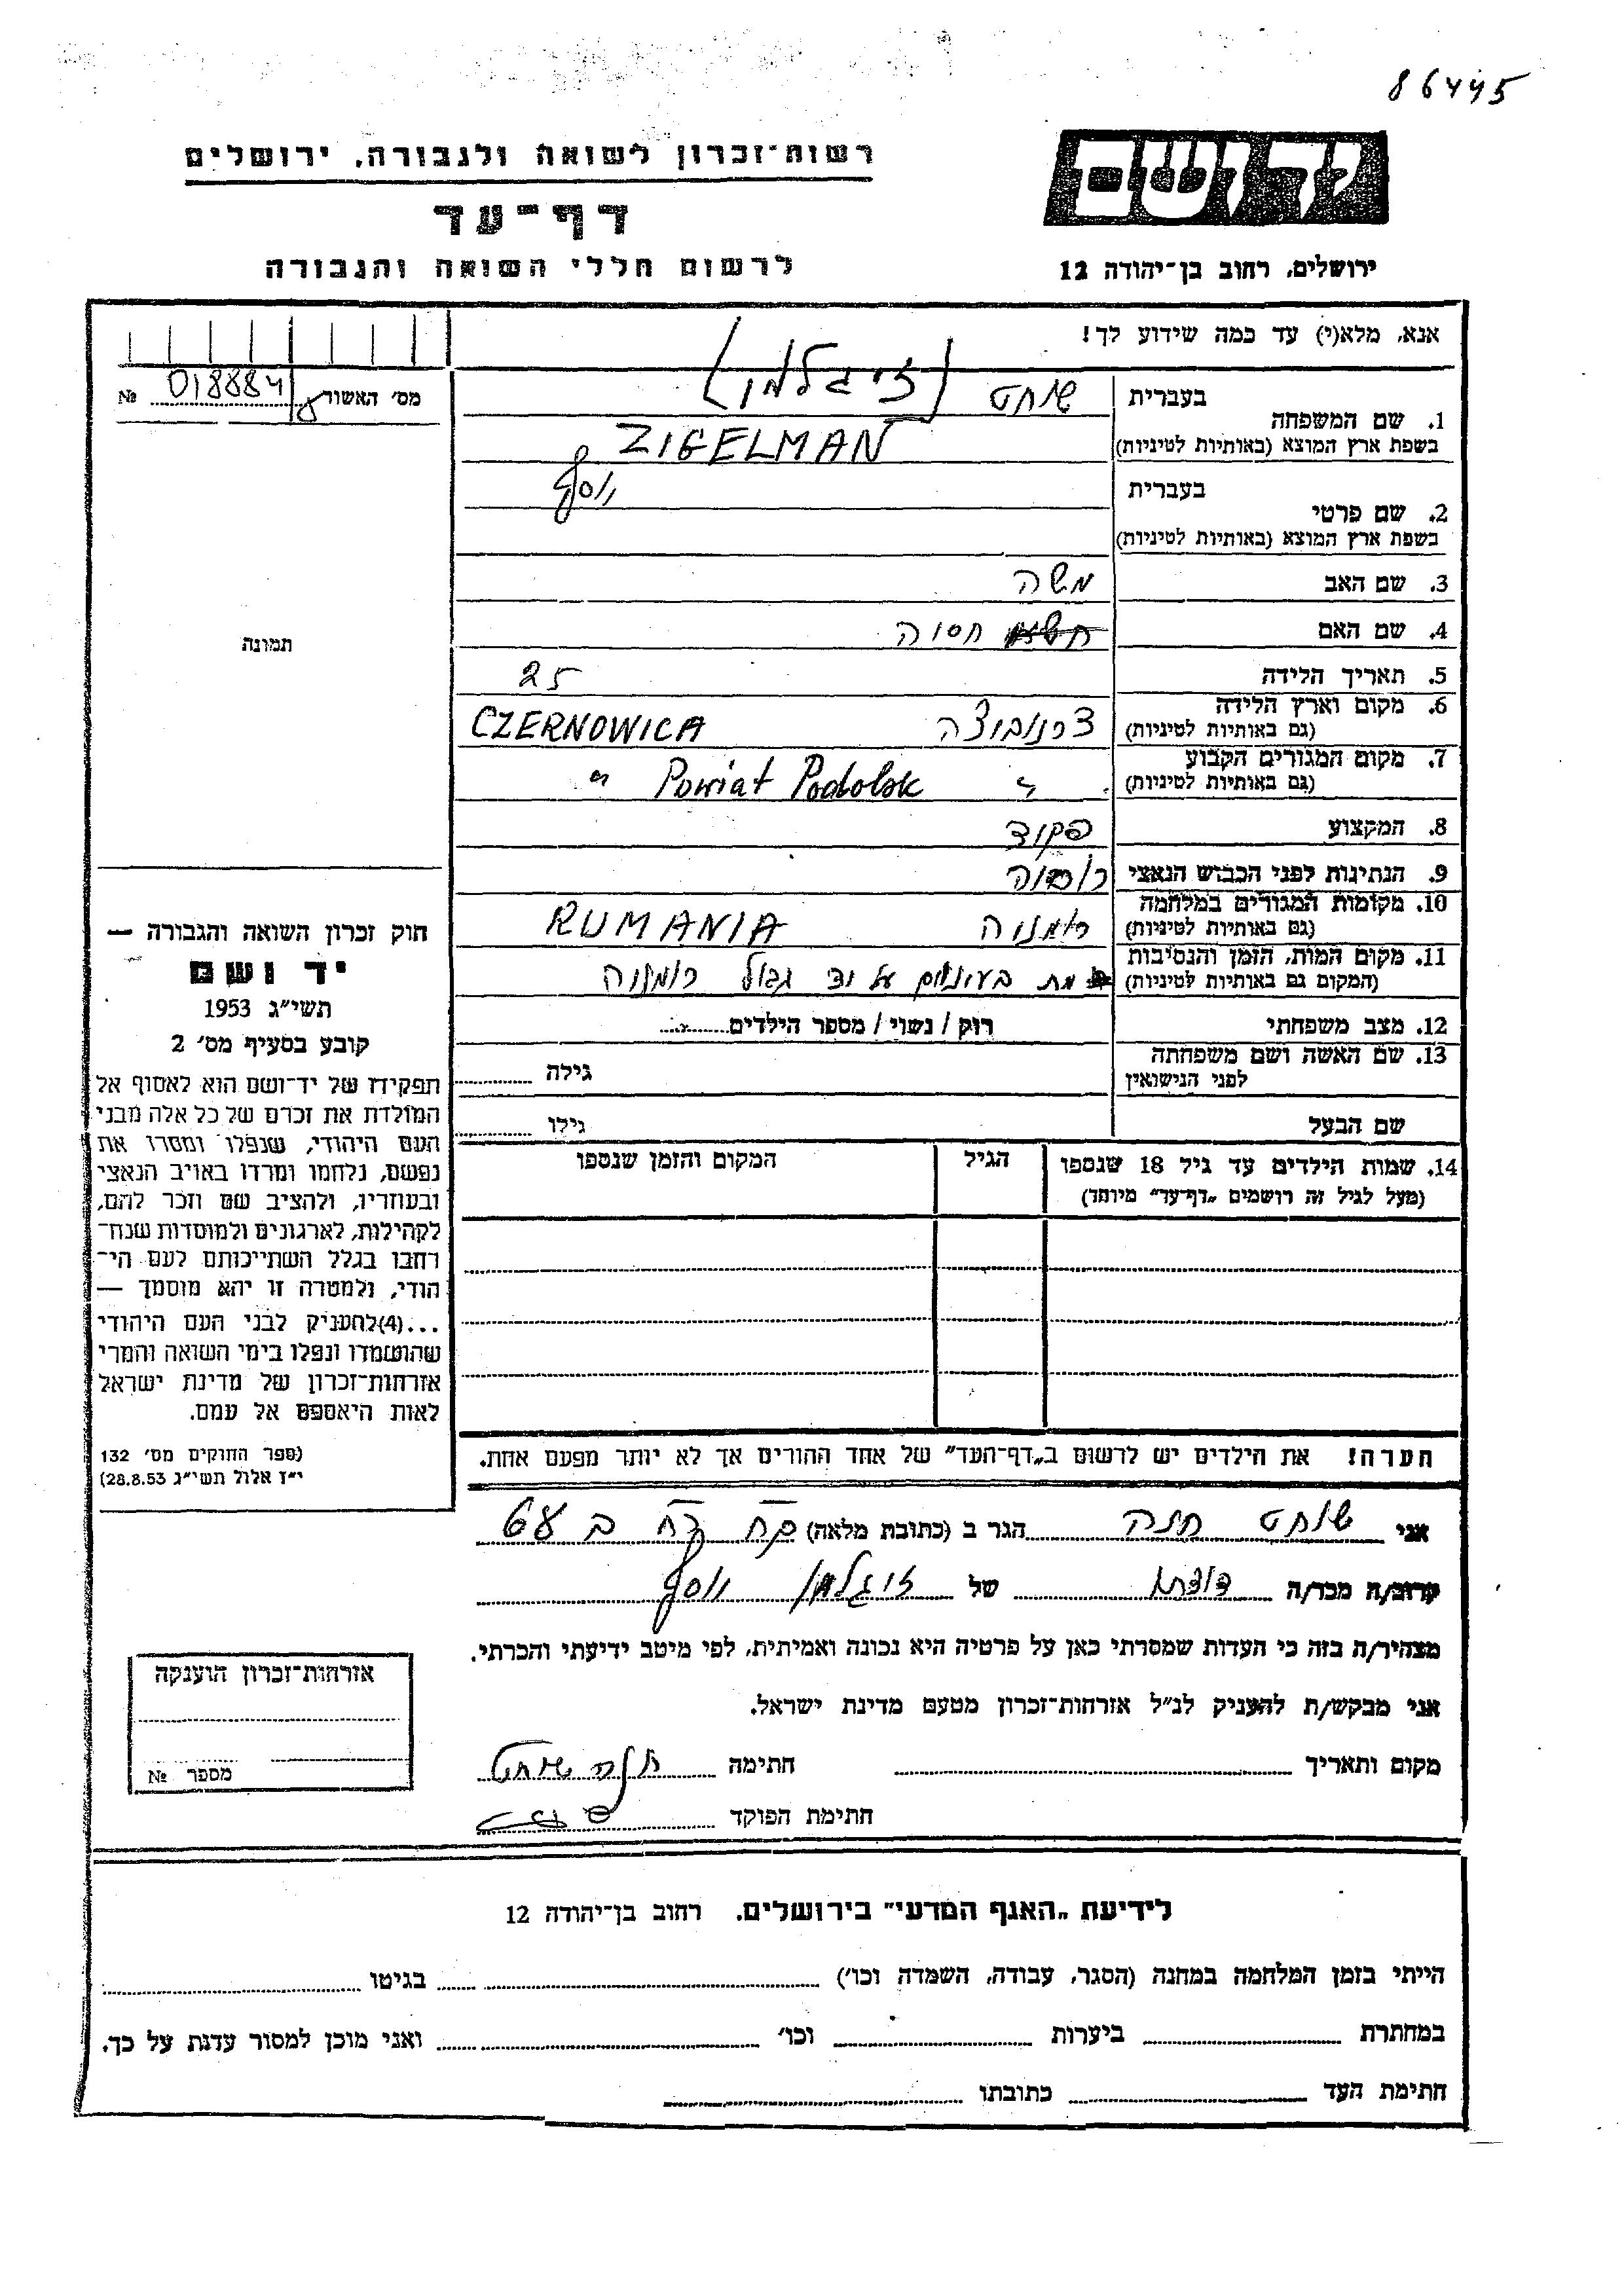 86445
יד ושם
רשות-זכרון לשואה ולגבורה, ירושלים
דף-עד
לרשום חללי השואה והגבורה
ירושלים, רחוב בן-יהודה 12
אנא, מלא(י) עד כמה שידוע לך!
מס' האשור 018884 №
1. שם המשפחה
בעברית שוחט (זיגלמן)
בשפת ארץ המוצא (באותיות לטיניות) ZIGELMAN
2. שם פרטי
בעברית יוסף
בשפת ארץ המוצא (באותיות לטיניות)
3. שם האב משה
4. שם האם חסיה
5. תאריך הלידה 25
6. מקום וארץ הלידה (גם באותיות לטיניות) צרנוביצה CZERNOWICA
7. מקום המגורים הקבוע (גם באותיות לטיניות) " Powiat Podolsk "
8. המקצוע פקיד
9. הנתינות לפני הכבוש הנאצי
10. מקומות המגורים במלחמה (גם באותיות לטיניות) רומניה RUMANIA
11. מקום המות, הזמן והנסיבות (המקום גם באותיות לטיניות) מת בעינויים על יד גבול רומניה
12. מצב משפחתי רוק / נשוי / מספר הילדים
13. שם האשה ושם משפחתה לפני הנישואין גילה
שם הבעל גילו
14. שמות הילדים עד גיל 18 שנספו (מעל לגיל זה רושמים „דף-עד" מיוחד) הגיל המקום והזמן שנספו
תמונה
חוק זכרון השואה והגבורה —
יד ושם
תשי"ג 1953
קובע בסעיף מס' 2
תפקידו של יד-ושם הוא לאסוף אל
המולדת את זכרם של כל אלה מבני
העם היהודי, שנפלו ומסרו את
נפשם, נלחמו ומרדו באויב הנאצי
ובעוזריו, ולהציב שם וזכר להם,
לקהילות, לארגונים ולמוסדות שנח-
רבו בגלל השתייכותם לעם הי-
הודי, ולמטרה זו יהא מוסמך —
...(4)להעניק לבני העם היהודי
שהושמדו ונפלו בימי השואה והמרי
אזרחות-זכרון של מדינת ישראל
לאות היאספם אל עמם.
(ספר החוקים מס' 132
י"ז אלול תשי"ג 28.8.53)
הערה! את הילדים יש לרשום ב„דף-העד" של אחד ההורים אך לא יותר מפעם אחת.
אני שוחט חנה הגר ב (כתובת מלאה)
קרוב/ה מכר/ה דודתו של זיגלמן יוסף
מצהיר/ה בזה כי העדות שמסרתי כאן על פרטיה היא נכונה ואמיתית, לפי מיטב ידיעתי והכרתי.
אני מבקש/ת להעניק לנ"ל אזרחות-זכרון מטעם מדינת ישראל.
מקום ותאריך חתימה חנה שוחט
חתימת הפוקד
אזרחות-זכרון הוענקה
מספר №
לידיעת „האגף המדעי" בירושלים, רחוב בן-יהודה 12
הייתי בזמן המלחמה במחנה (הסגר, עבודה, השמדה וכו') בגיטו
במחתרת ביערות וכו' ואני מוכן למסור עדות על כך.
חתימת העד כתובתו